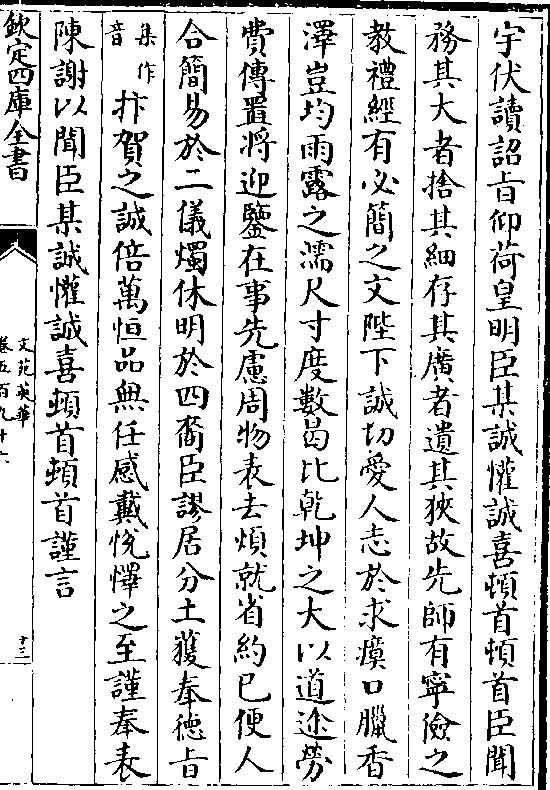 宇伏讀詔㫖仰荷皇明臣某誠懽誠喜頓首頓首臣聞
務其大者捨其細存其廣者遺其狹故先師有寧儉之
教禮經有必簡之文陛下誠切愛人志於求瘼口臘香
澤豈均雨露之濡尺寸度數曷比乾坤之大以道途勞
費傳置將迎鑒在事先慮周物表去煩就省約已便人
合簡易於二儀燭休明於四裔臣謬居分土獲奉徳㫖
集作
音
抃賀之誠倍萬恒品無任感戴恱懌之至謹奉表
陳謝以聞臣某誠懽誠喜頓首頓首謹言
欽定四庫全書
文苑英華
卷五百九十六
十三